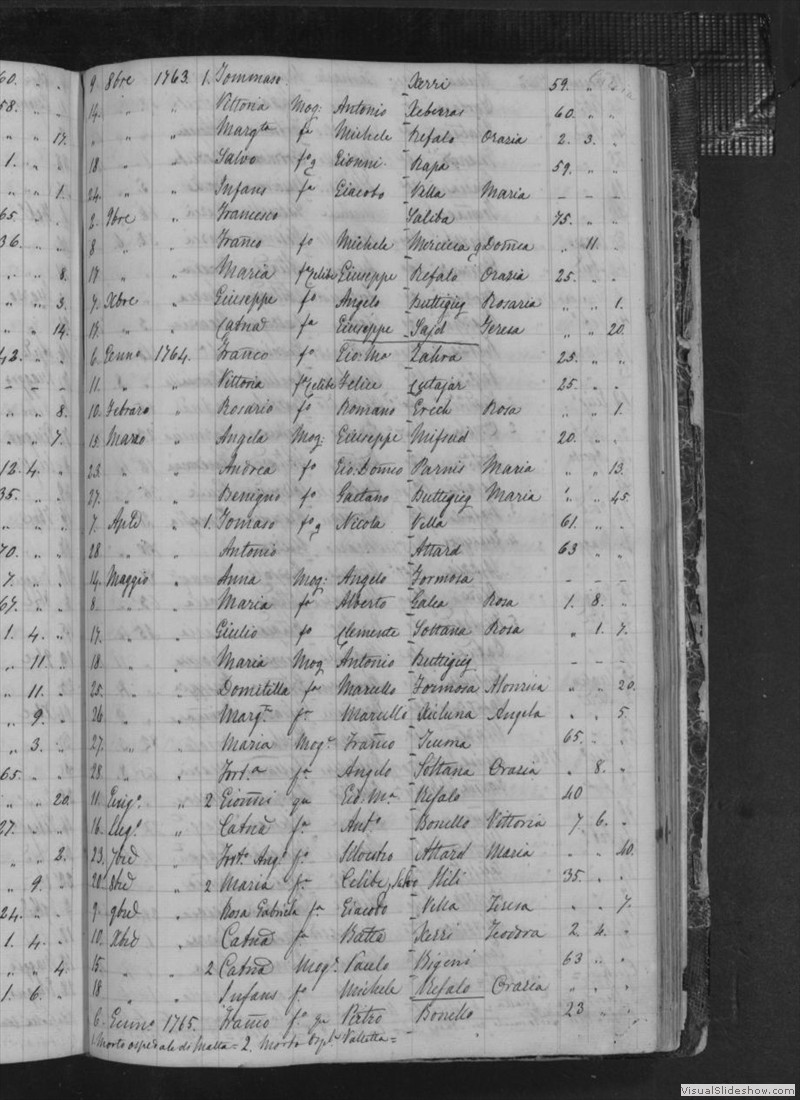 60. " "
9. 8bre 1763. 1. Tommaso Xerri 59. " "
58. " "
14. " " Vittoria Mog: Antonio Xeberras 60. " "
" " 17.
" " " Margta fa Michele Refalo Orazia 2. 3. "
1. " "
18. " " Salvo fo q Gionni Rapa 59. " "
" " 1.
24. " " Infans fa Giacobo Vella Maria – – –
65. " "
2. 9bre " Francesco Saliba 75. " "
36. " "
8. " " Franco fo Michele Mercieca q Domca " 11. "
" " 8.
18. " " Maria fa Celibe Giuseppe Refalo Orazia 25. " "
" " 3.
7. Xbre " Giuseppe fo Angelo Buttigieg Rosaria " " 1.
" " 14.
19. " " Catna fa Giuseppe Said Teresa " " 20.
42. " "
6. Genno 1764. Franco fo Gio: Ma Zahra 25. " "
– – –
11. " " Vittoria fa Celibe Felice Cutajar 25. " "
" " 8.
10. Febraro " Rosario fo Romano Grech Rosa " " 1.
" " 7.
15. Marzo " Angela Mog: Giuseppe Mifsud 20. " "
12. 4. "
23. " " Andrea fo Gio Domco Parnis Maria " " 13.
35. " "
27. " " Benigno fo Gaetano Buttigieg Maria " " 45.
7. Aple " 1. Tomaso fo q Nicola Vella 61. " "
70. " "
28. " " Antonio Attard 63 " "
7. " "
14. Maggio " Anna Mog: Angelo Formosa – – –
67. " "
8. " " Maria fa Alberto Galea Rosa 1. 8. "
1. 4. "
17. " " Giulio fo Clemente Soltana Rosa " 1. 7.
" 11. "
18. " " Maria Mog Antonio Buttigieg – – –
" 11. "
25. " " Domitilla fa Marcello Formosa " " 20.
" 9. "
26. " " Margta fa Marcello Xiluna Angela " " 5.
" 3. "
27. " " Maria Moge Franco Teuma 65. " "
65. " "
28. " " Forta fa Angelo Soltana Orazia " 8. "
" " 20.
11. Giugo " 2 Gionni qu Gio. Ma Refalo 40
27. " "
16. Lugo " Catna fa Anto Bonello Vittoria 7. 6. "
" " 2.
23. 7bre " Forta Anga fa Silvestro Attard Maria " " 40.
" 9. "
20. 8bre " 2 Maria fa Celibe q Salvo Hili 35. " "
24. " "
9. 9bre " Rosa Gabriela fa Giacobo Vella Teresa " " 7.
1. 4. "
10. Xbre " Catna fa Batta Xerri Teodora 2. 4. "
" " 4.
15. " " 2 Catna Moge Paulo Bigeni 63 " "
1. 6. "
18 " " Infans fo Michele Refalo Orazia " " "
6. Genno 1765. Franco fo qu Pietro Bonello 23 " "
1. Morto ospedale di Malta = 2. Morto Ospl. Valletta =
VisualSlideshow.com